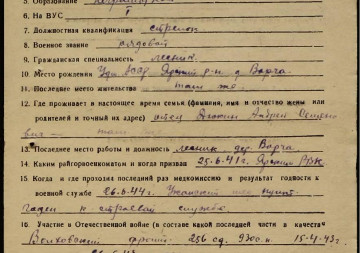 5. Образование
6. На ВУС 1
7. Должностная квалификация стрелок
8. Военное звание рядовой
9. Гражданская специальность лесник
10. Место рождения Удм. АССР р-н д. Варча
11. Последнее место жительства там же
12. Где проживает в настоящее время семья (фамилия, имя и отчество жены или
родителей и точный их адрес) отец Андрей
там же
13. Последнее место работы и должность лесник дер. Варча
14. Каким райгорвоенкоматом и когда призван 25.6.41 г. РВК
15. Когда и где проходил последний раз медкомиссию и результат годности к
военной службе 26.6.44 г.
годен к строевой службе
16. Участие в Отечественной войне (в составе какой последней части и качестве
Волховский фронт 256 сд. 930 15.4.43 г.